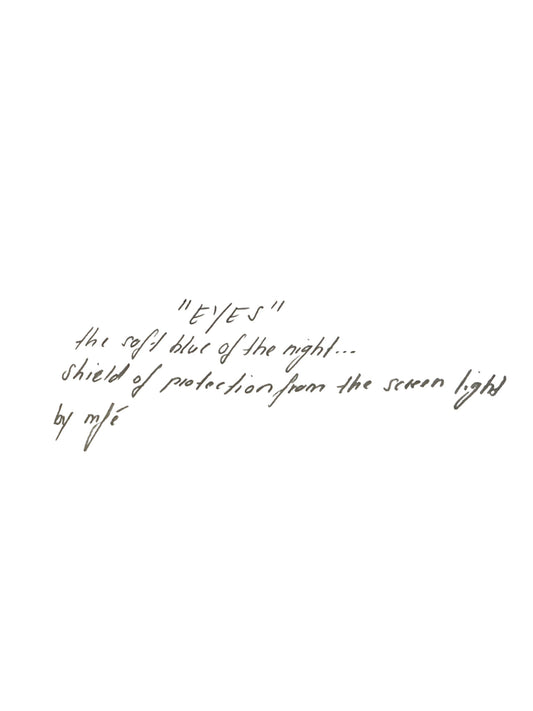 "EYES"
the soft blue of the night...
shield of protection from the screen light
by mfé